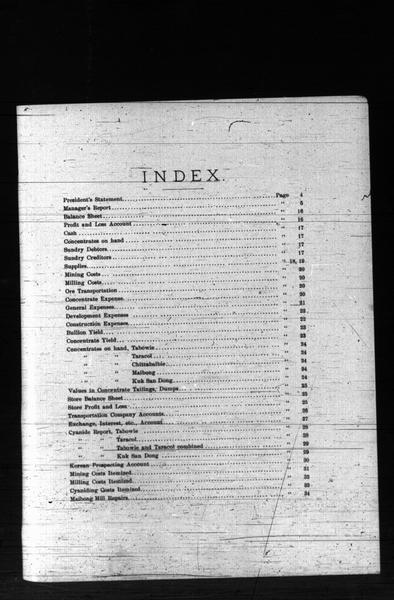 INDEX.
President's Statement........ Page 4
Manager's Report........ " 5
Balance Sheet........ " 16
Profit and Loss Account........ " 16
Cash........ " 17
Concentrates on hand........ " 17
Sundry Debtors........ " 17
Sundry Creditors........ " 17
Supplies........ " 18, 19
Mining Costs........ " 20
Milling Costs........ " 20
Ore Transportation........ " 20
Concentrate Expense........ " 20
General Expenses........ " 21
Development Expenses........ " 22
Construction Expenses........ " 22
Bullion Yield........ " 23
Concentrate Yield........ " 23
Concentrates on hand, Tabowie........ " 24
" " Taracol........ " 24
" " Chittabalbie........ " 24
" " Maibong........ " 24
" " Kuk San Dong........ " 24
Values in Concentrate Tailings, Dumps........ " 25
Store Balance Sheet........ " 25
Store Profit and Loss........ " 25
Transportation Company Accounts........ " 26
Exchange, Interest, etc., Account........ " 27
Cyanide Report, Tabowie........ " 28
" " Taracol........ " 28
" " Tabowie and Taracol combined........ " 29
" " Kuk San Dong........ " 29
Korean Prospecting Account........ " 30
Mining Costs Itemized........ " 31
Milling Costs Itemized........ " 32
Cyaniding Costs Itemized........ " 33
Maibong Mill Repairs........ " 34